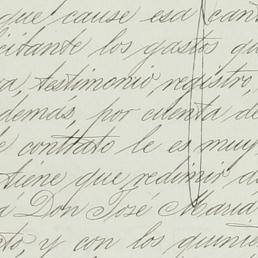 que cause esa can
citante los gastos qu
a, testimonio, registro,
demas, por cuenta de
e contrato le es muy
tiene que redimir a
á Don José Maria
to, y con los quinie